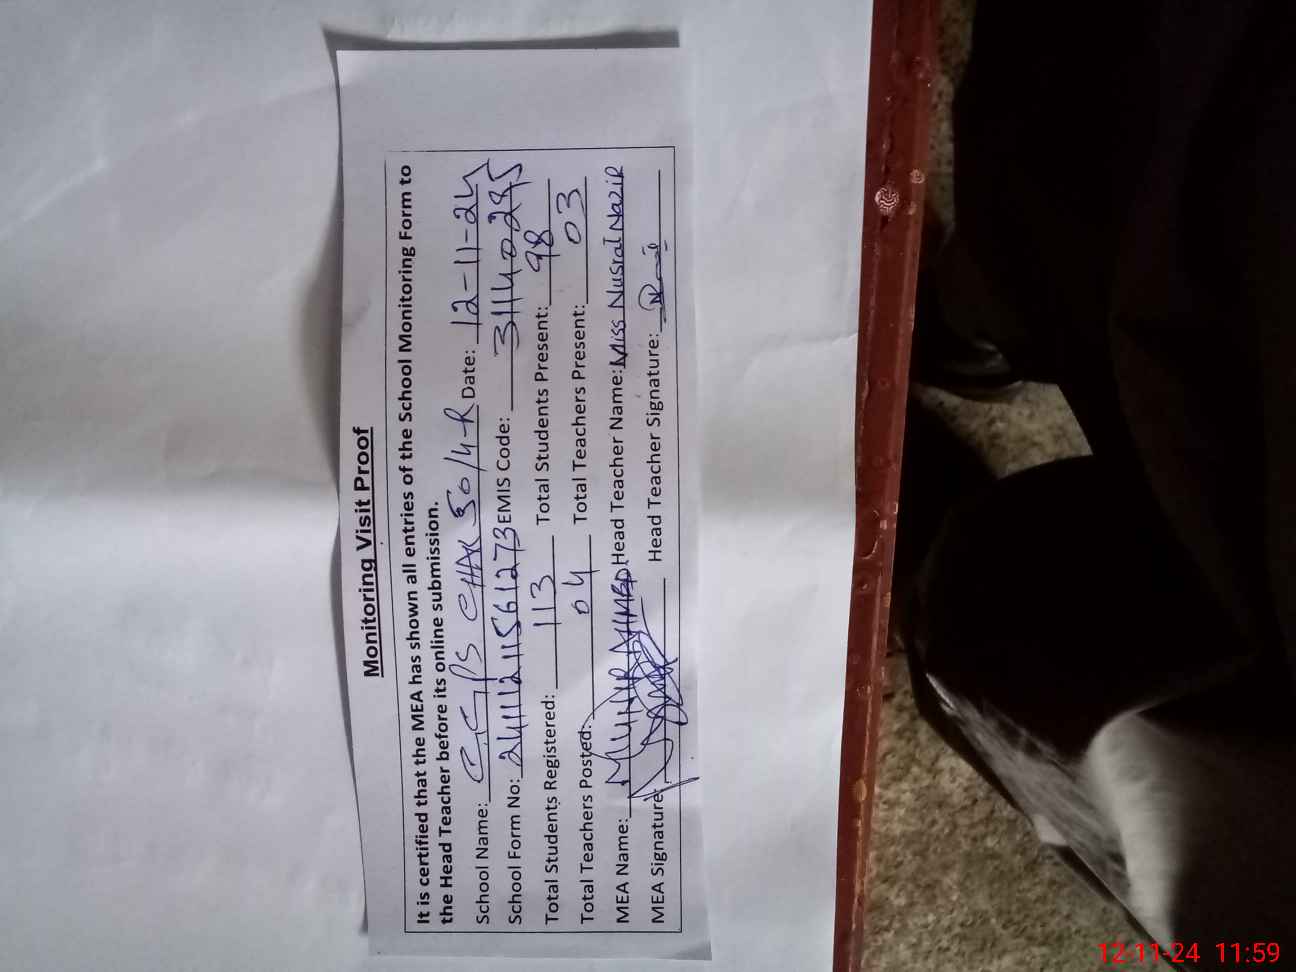 Monitoring Visit Proof
It is certified that the MEA has shown all entries of the School Monitoring Form to
the Head Teacher before its online submission.
School Name: GGPS CHAK 50/4-R Date: 12-11-24
School Form No: 24111211561273 EMIS Code: 31140295
Total Students Registered: 113 Total Students Present: 98
Total Teachers Posted: 04 Total Teachers Present: 03
MEA Name: MUNIR AHMED Head Teacher Name: Miss Nusrat Nazir
MEA Signature: Head Teacher Signature:
12-11-24 11:59